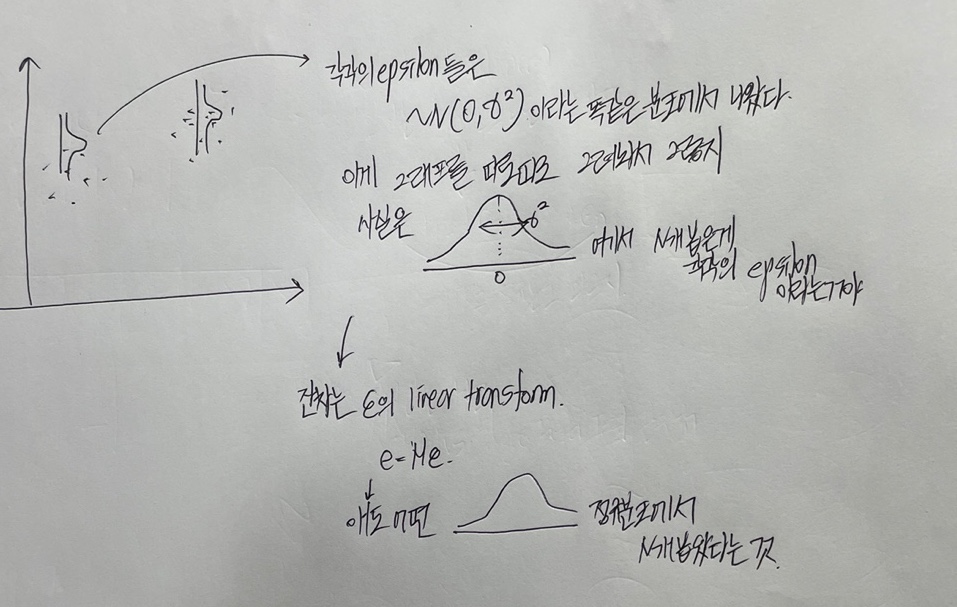 각각의 epsilon 들은
~N(0, σ²) 이라는 똑같은 분포에서 나왔다.
이게 그래프를 따로따로 그려놔서 그렇지
사실은
σ²
0
여기서 N개 뽑은게
각각의 epsilon
이라는거야
잔차는 ε의 linear transform.
e=Me.
얘도 어떤
정규분포에서
N개 뽑았다는 것.